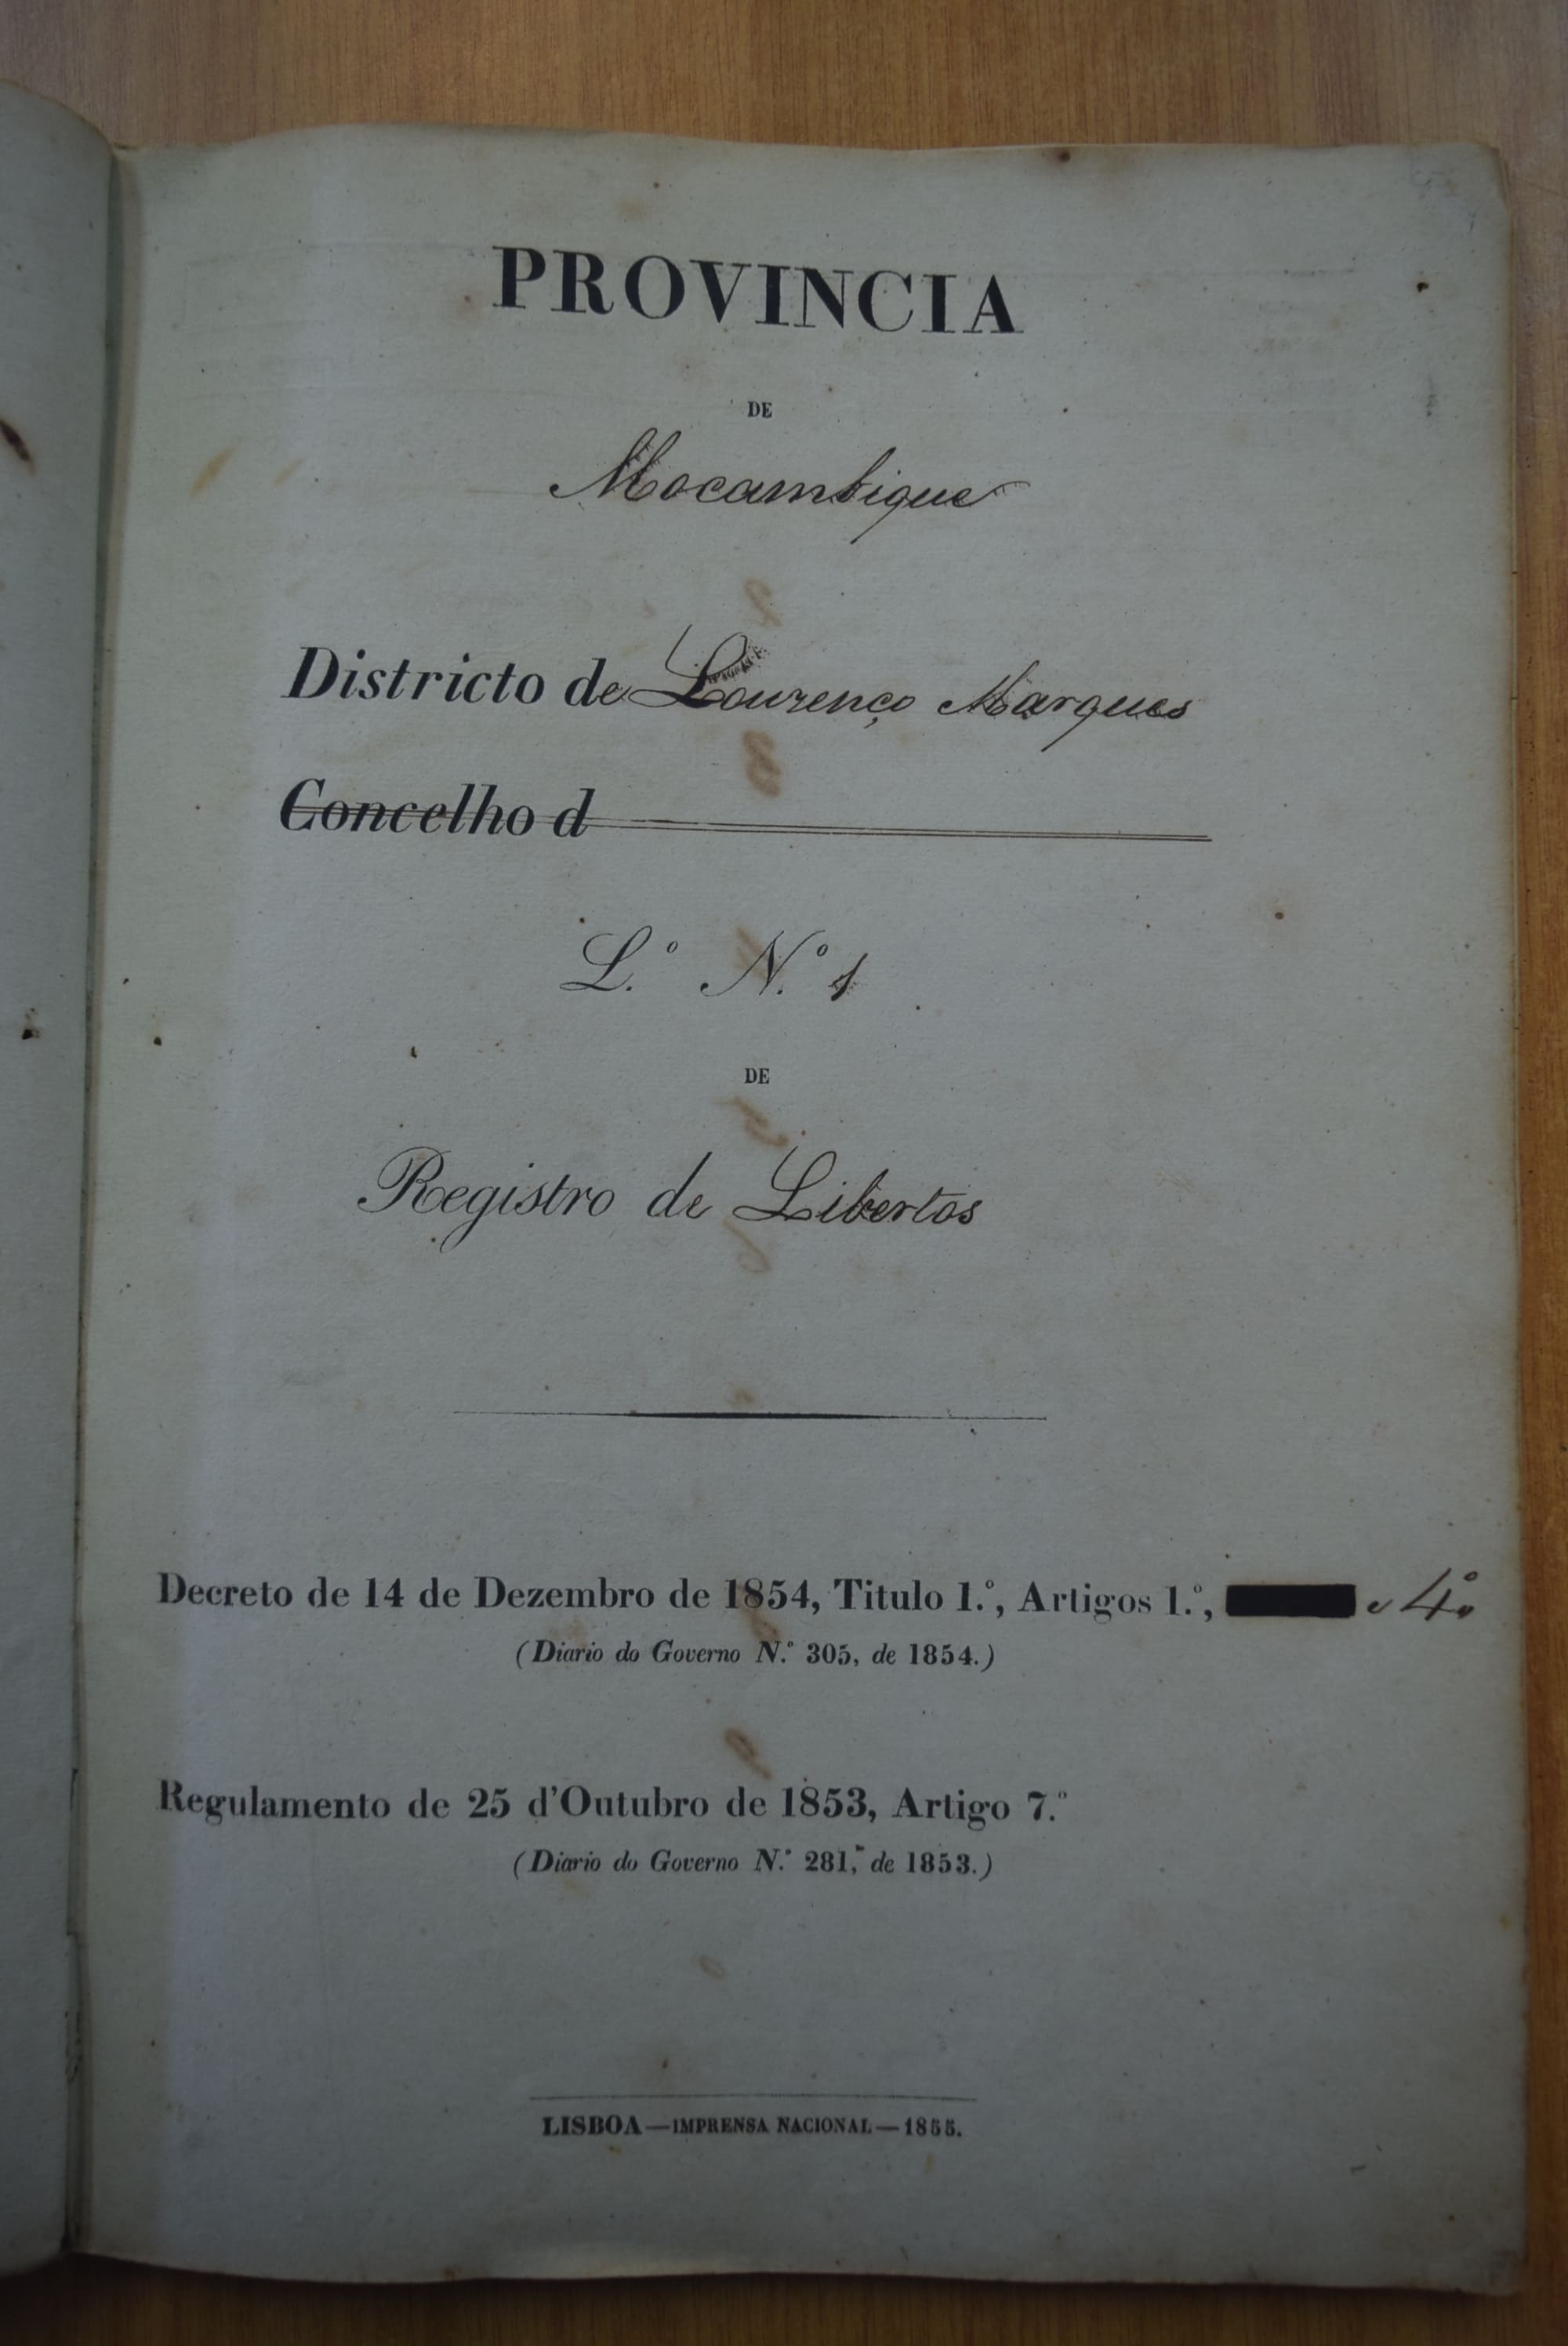 PROVINCIA
DE
Mocambique
Districto de Lourenço Marques
Concelho d
L.º N.º 1
DE
Registro de Libertos
Decreto de 14 de Dezembro de 1854, Titulo 1.º, Artigos 1.º, e 4º
(Diario do Governo N.º 305, de 1854.)
Regulamento de 25 d'Outubro de 1853, Artigo 7.º
(Diario do Governo N.º 281, de 1853.)
LISBOA—IMPRENSA NACIONAL—1855.